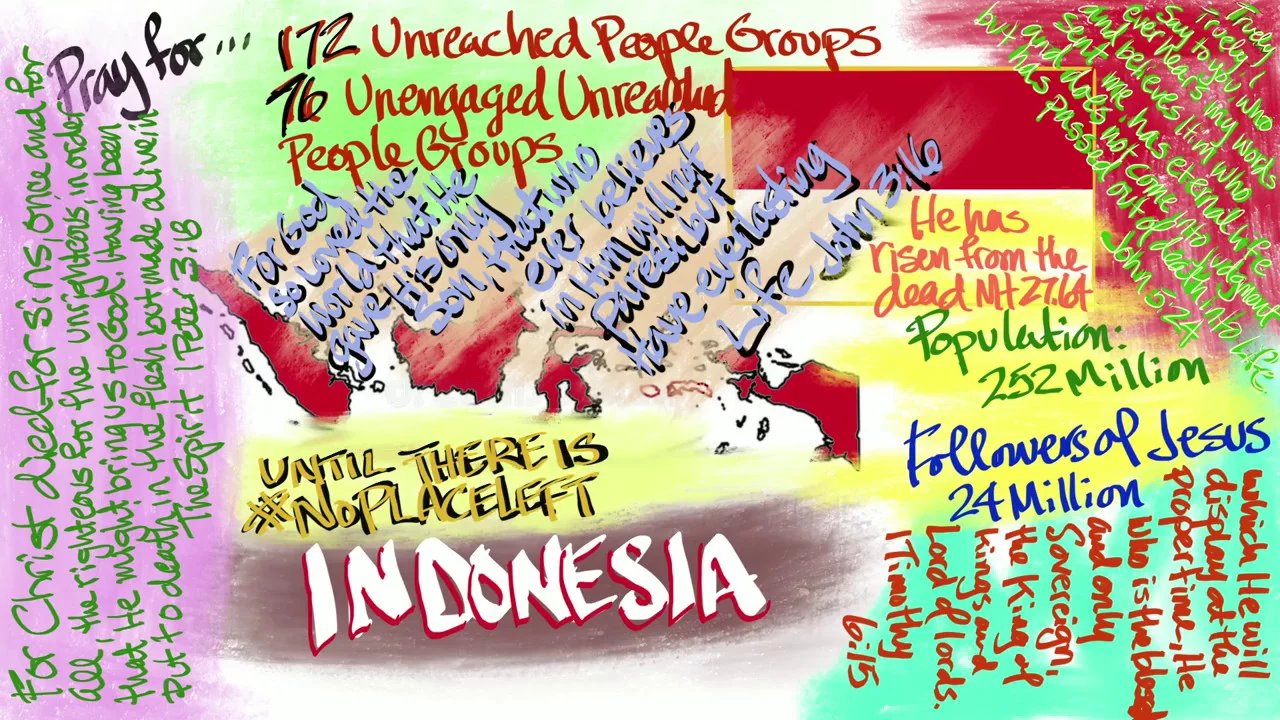 Pray for...
172 Unreached People Groups
76 Unengaged Unreached
People Groups
For God
so Loved the
World that He
gave His only
Son, that who
ever believes
in Him will not
parish but
Have everlasting
Life John 3:16
Truely Truely I
Say to you who
ever hears my words
and believes Him who
Sent me, has eternal life
and does not come into judgement
but has passed out of death into Life
John 5:24
He has
risen from the
dead Mt 27:64
Population:
252 Million
Followers of Jesus
24 Million
For Christ died for sins, once and for
all, the righteous for the unrighteous, in order
that He might bring us to God. Having been
Put to death in the flesh but made alive in
The Spirit 1 Peter 3:18
UNTIL THERE IS
#NOPLACELEFT
INDONESIA
Which He will
display at the
proper time, He
Who is the bless
and only
Sovereign
the King of
kings and
Lord of lords.
1 Timothy
6:15